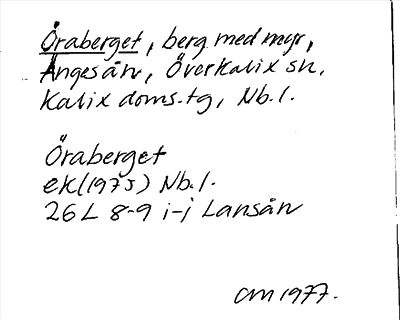 Öraberget, berg med myr,
Ängesån, Överkalix sn,
Kalix doms.tg, Nb.l.
Öraberget
ek(1975) Nb.l.
26L 8-9 i-j Lansån
CM 1977.